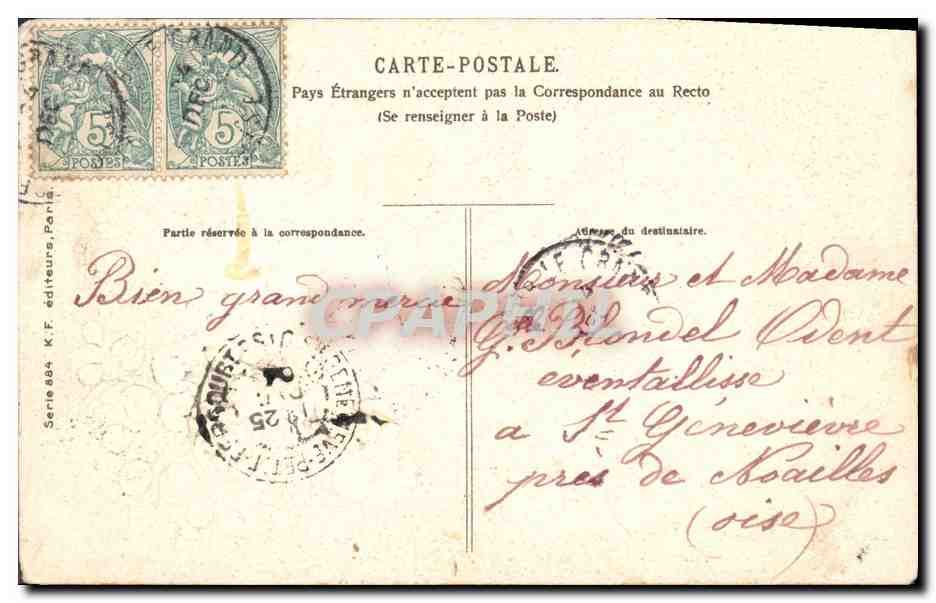 CARTE-POSTALE.
Pays Étrangers n'acceptent pas la Correspondance au Recto
(Se renseigner à la Poste)
5 5
POSTES POSTES
GRAND
DEC DEC
Partie réservée à la correspondance.
Bien grand merci
Adresse du destinataire.
Monsieur et Madame
G. Blondel Odent
eventallisse
a St Génevièvre
près de Noailles
(oise)
25
CPAPHIL
Serie 884 K.F. éditeurs, Paris.